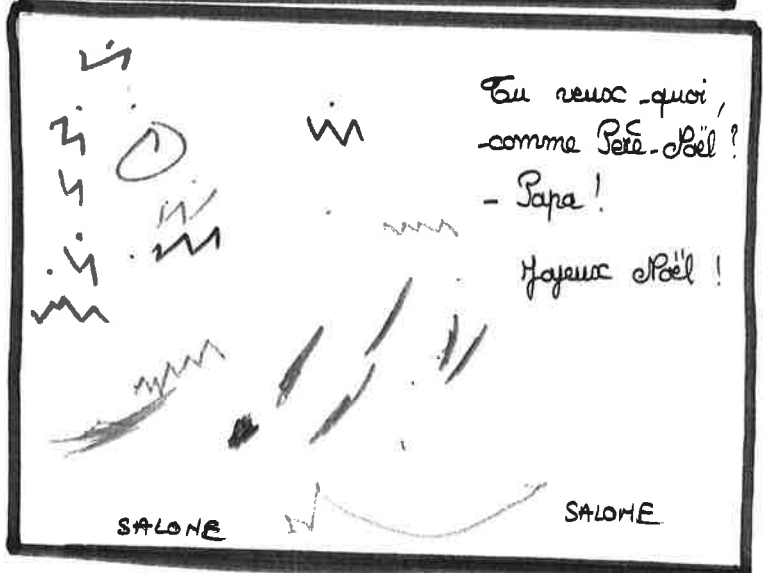 Tu veux quoi,
comme Père-Noël ?
- Papa !
Joyeux Noël !
SALOME SALOME